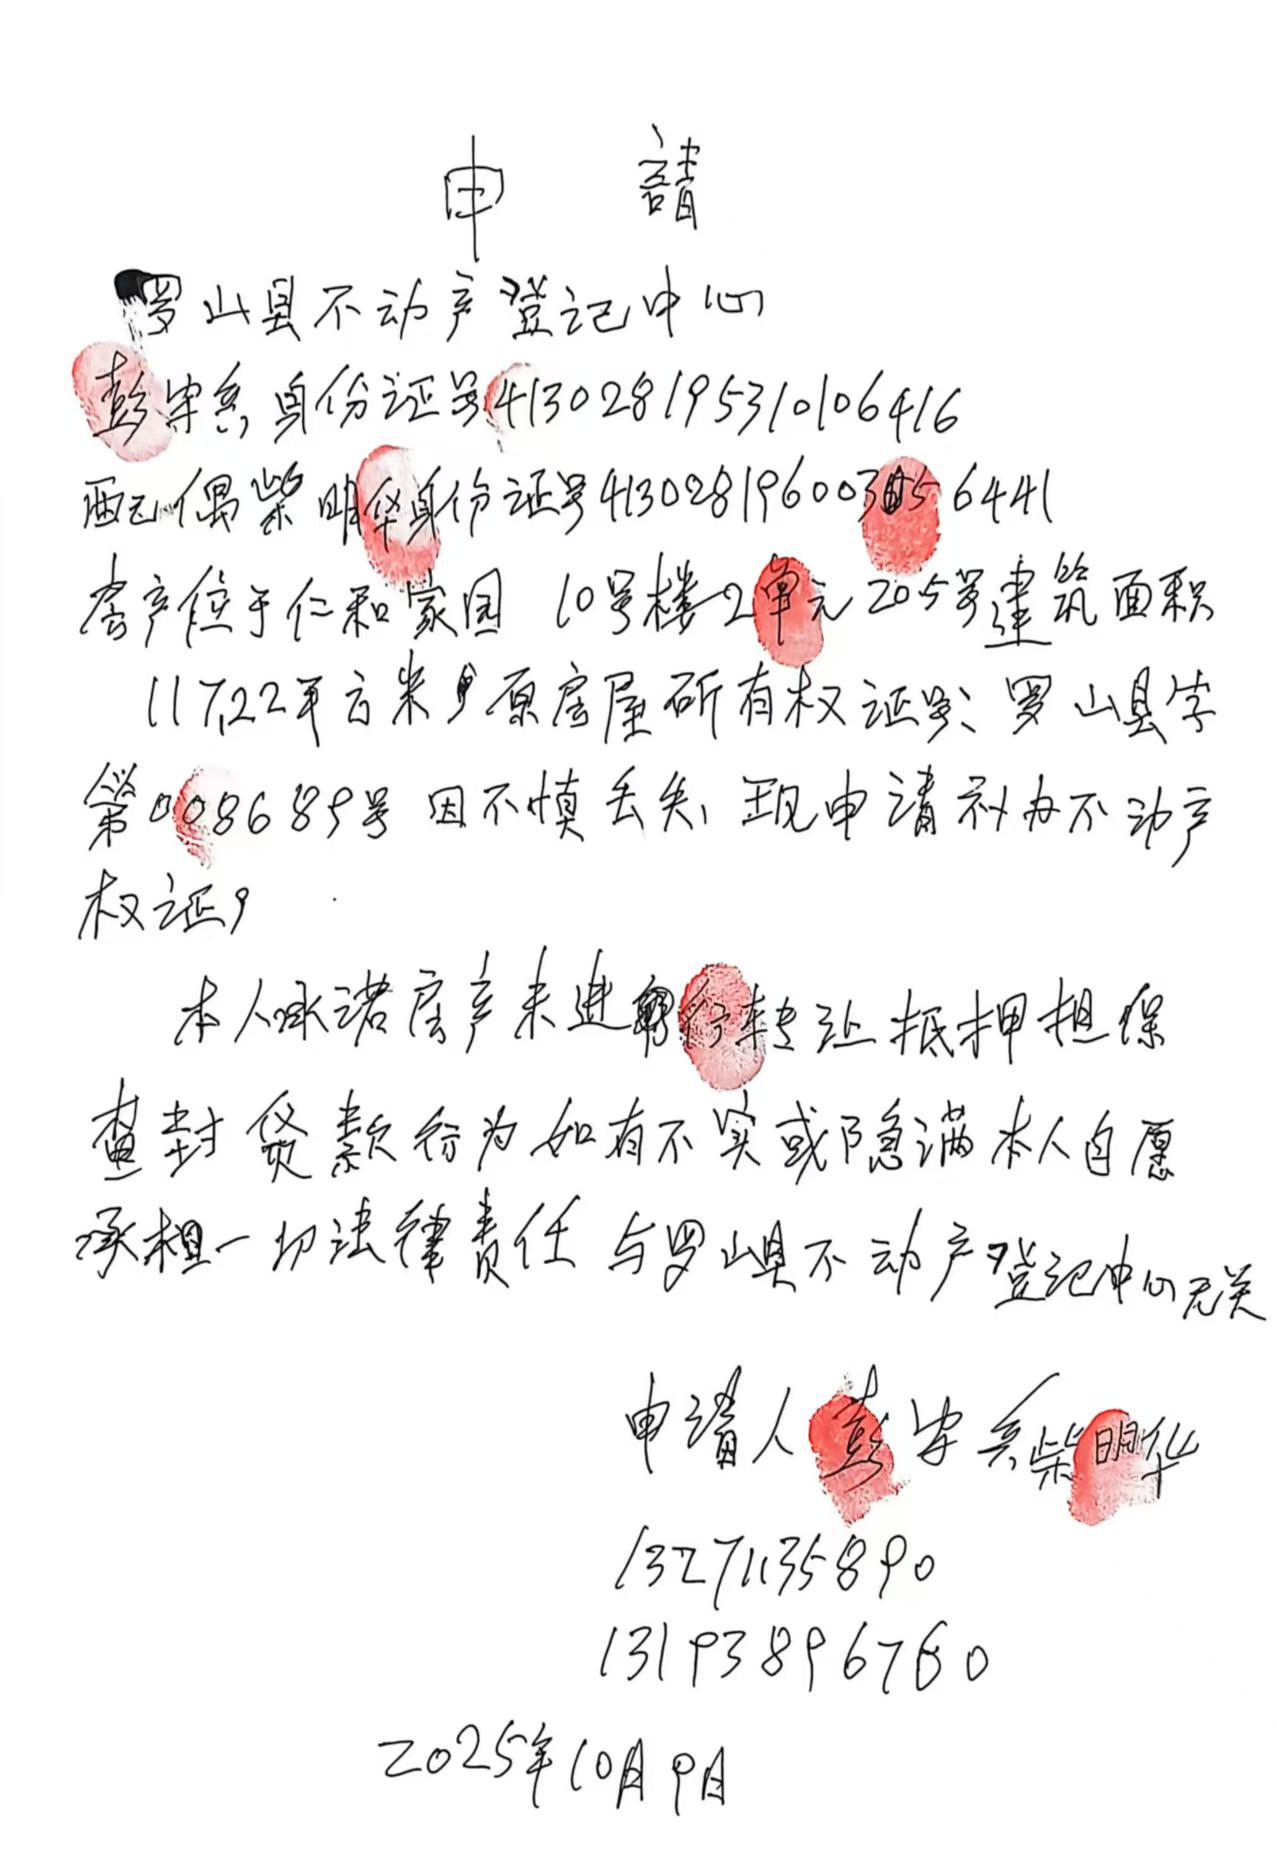 申 請
罗山县不动产登记中心
彭家系身份证号413028195310106416
配偶柴明华身份证号413028196003056441
房产位于仁和家园 10号楼2单元205号建筑面积
117.22平方米,原房屋所有权证号:罗山县字
第008689号因不慎丢失,现申请补办不动产
权证,
本人承诺房产未进行转让抵押担保
查封贷款行为如有不实或隐满本人自愿
承担一切法律责任与罗山县不动产登记中心无关
申请人彭家系柴明华
13271135890
13193896760
2025年10月9日